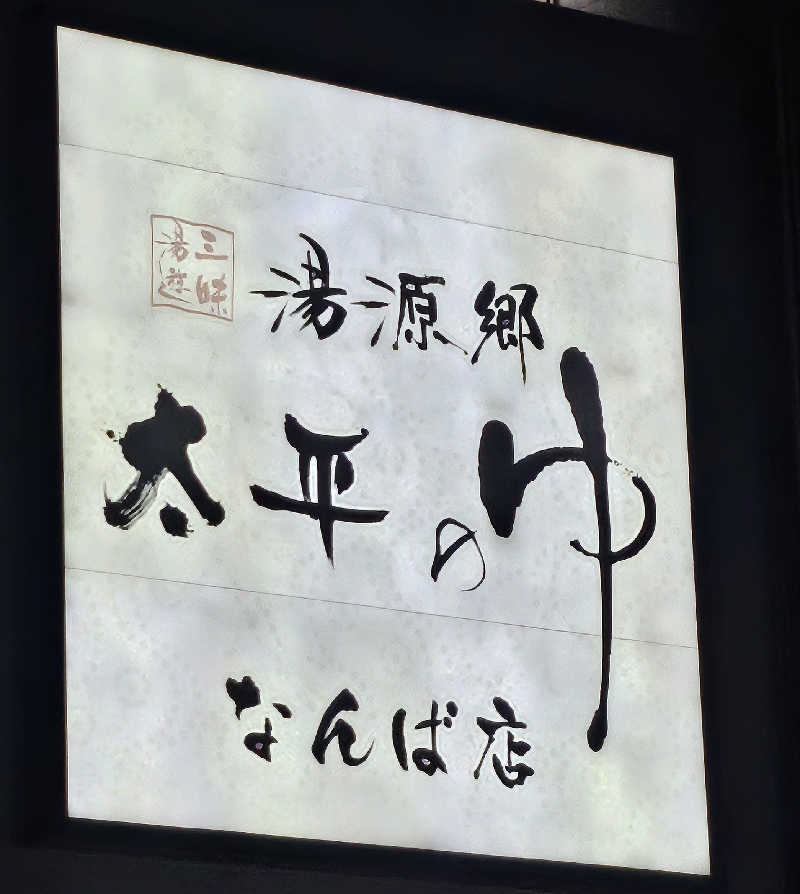 湯遊三昧
湯源郷
太平のゆ
なんば店